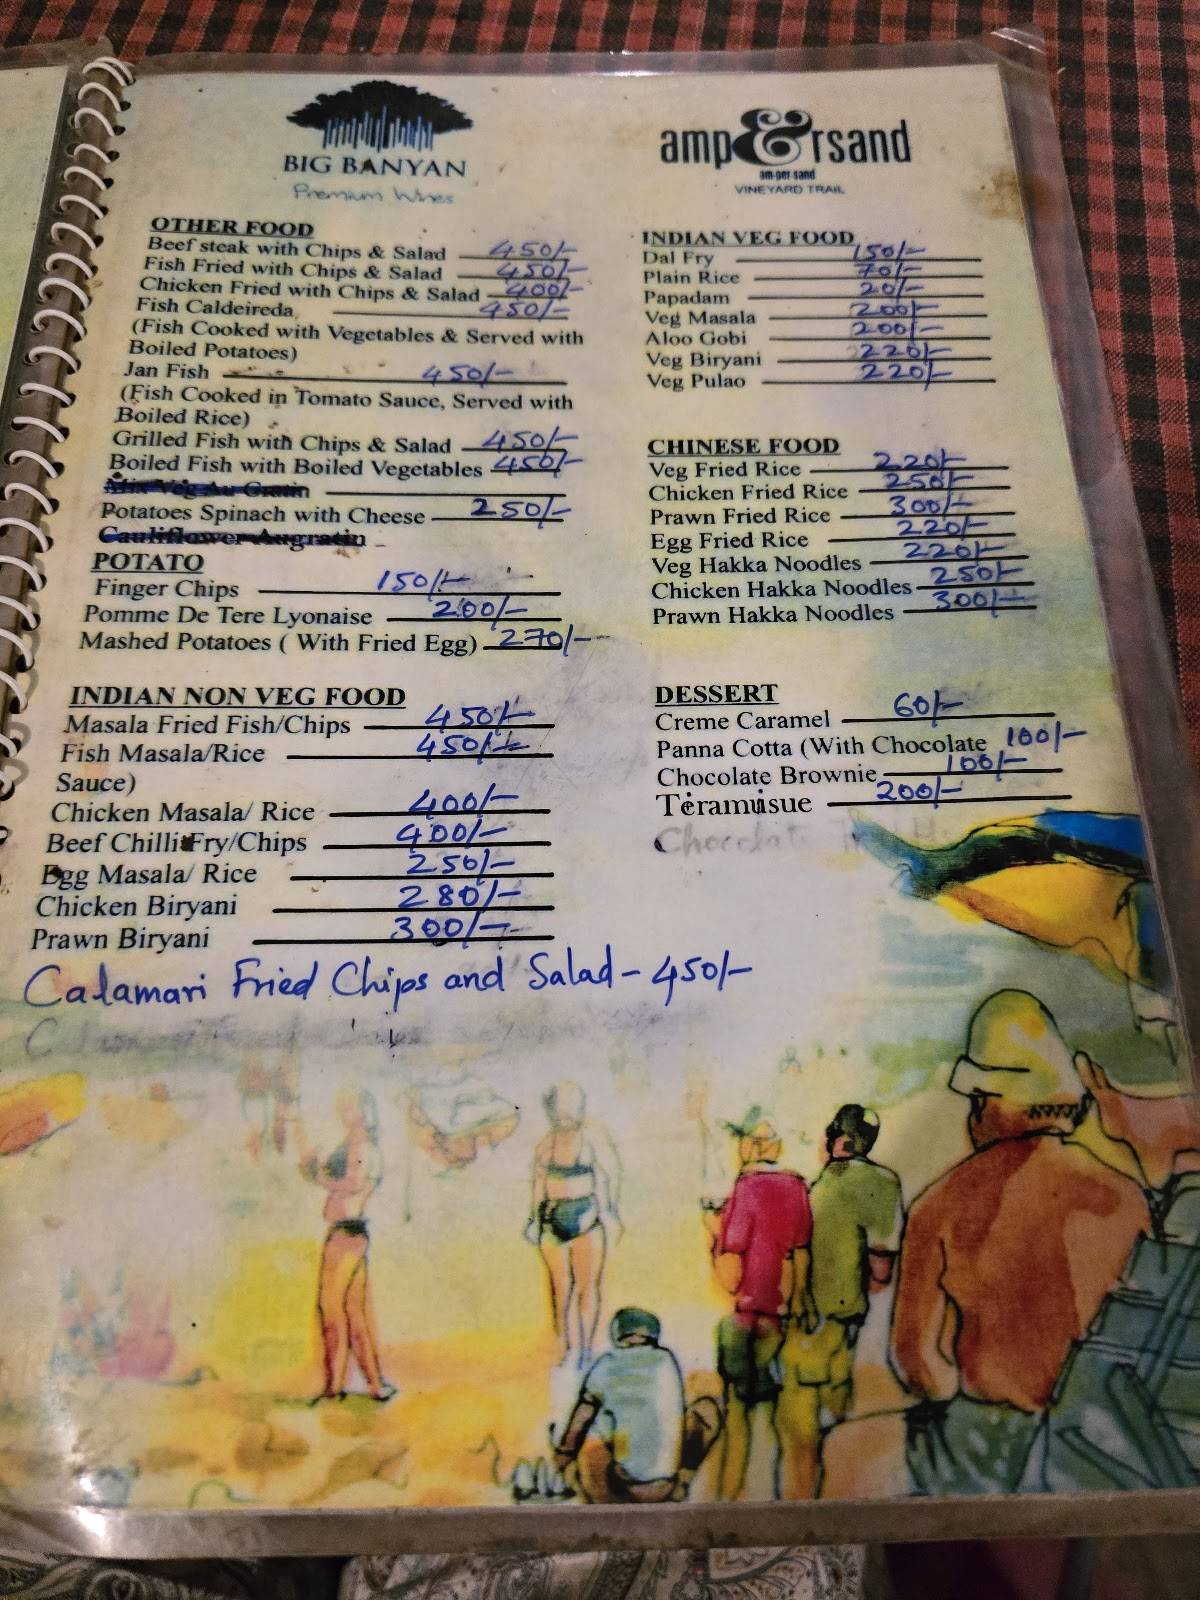 BIG BANYAN
Premium Wines
OTHER FOOD
Beef steak with Chips & Salad 450/-
Fish Fried with Chips & Salad 450/-
Chicken Fried with Chips & Salad 400/-
Fish Caldeireda 450/-
(Fish Cooked with Vegetables & Served with
Boiled Potatoes)
Jan Fish 450/-
(Fish Cooked in Tomato Sauce, Served with
Boiled Rice)
Grilled Fish with Chips & Salad 450/-
Boiled Fish with Boiled Vegetables 450/-
Mix Veg Au Gratin
Potatoes Spinach with Cheese 250/-
Cauliflower Augratin
POTATO
Finger Chips 150/-
Pomme De Tere Lyonaise 200/-
Mashed Potatoes ( With Fried Egg) 270/-
INDIAN NON VEG FOOD
Masala Fried Fish/Chips 450/-
Fish Masala/Rice 450/-
Sauce)
Chicken Masala/ Rice 400/-
Beef Chilli Fry/Chips 400/-
Egg Masala/ Rice 250/-
Chicken Biryani 280/-
Prawn Biryani 300/-
Calamari Fried Chips and Salad - 450/-
amp&rsand
am·per sand
VINEYARD TRAIL
INDIAN VEG FOOD
Dal Fry 150/-
Plain Rice 70/-
Papadam 20/-
Veg Masala 200/-
Aloo Gobi 200/-
Veg Biryani 220/-
Veg Pulao 220/-
CHINESE FOOD
Veg Fried Rice 220/-
Chicken Fried Rice 250/-
Prawn Fried Rice 300/-
Egg Fried Rice 220/-
Veg Hakka Noodles 220/-
Chicken Hakka Noodles 250/-
Prawn Hakka Noodles 300/-
DESSERT
Creme Caramel 60/-
Panna Cotta (With Chocolate 100/-
Chocolate Brownie 100/-
Teramusue 200/-
Chocolat